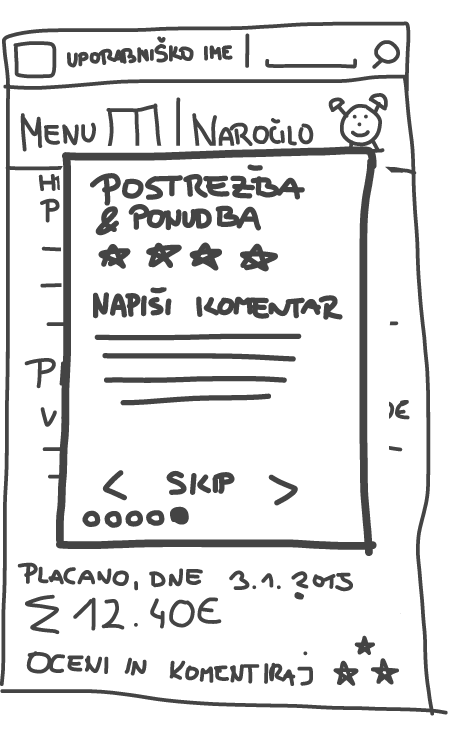 UPORABNIŠKO IME
MENU | NAROČILO
HI
P
POSTREŽBA
& PONUDBA
NAPIŠI KOMENTAR
P
V
E
< SKIP >
PLACANO, DNE 3.1.2015
Σ 12.40€
OCENI IN KOMENTIRAJ